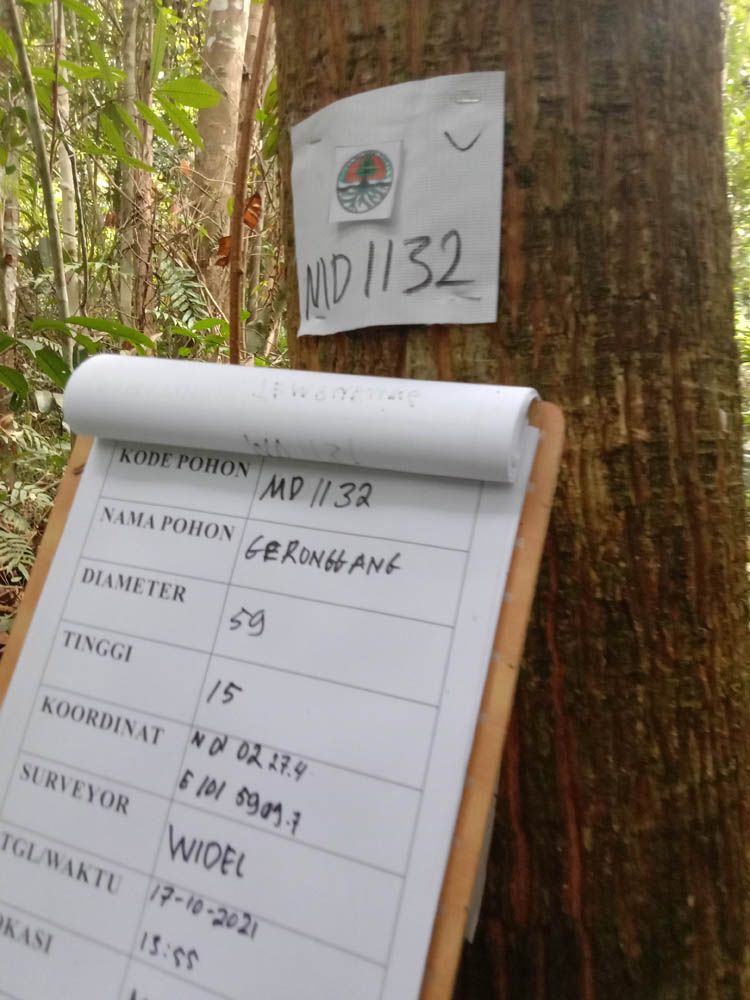 MD 1132
KODE POHON MD 1132
NAMA POHON GERONGGANG
DIAMETER 59
TINGGI 15
KOORDINAT N 01 02 27.4
E 101 59 09.7
SURVEYOR WIDEL
TGL/WAKTU 17-10-2021
13:55
OKASI